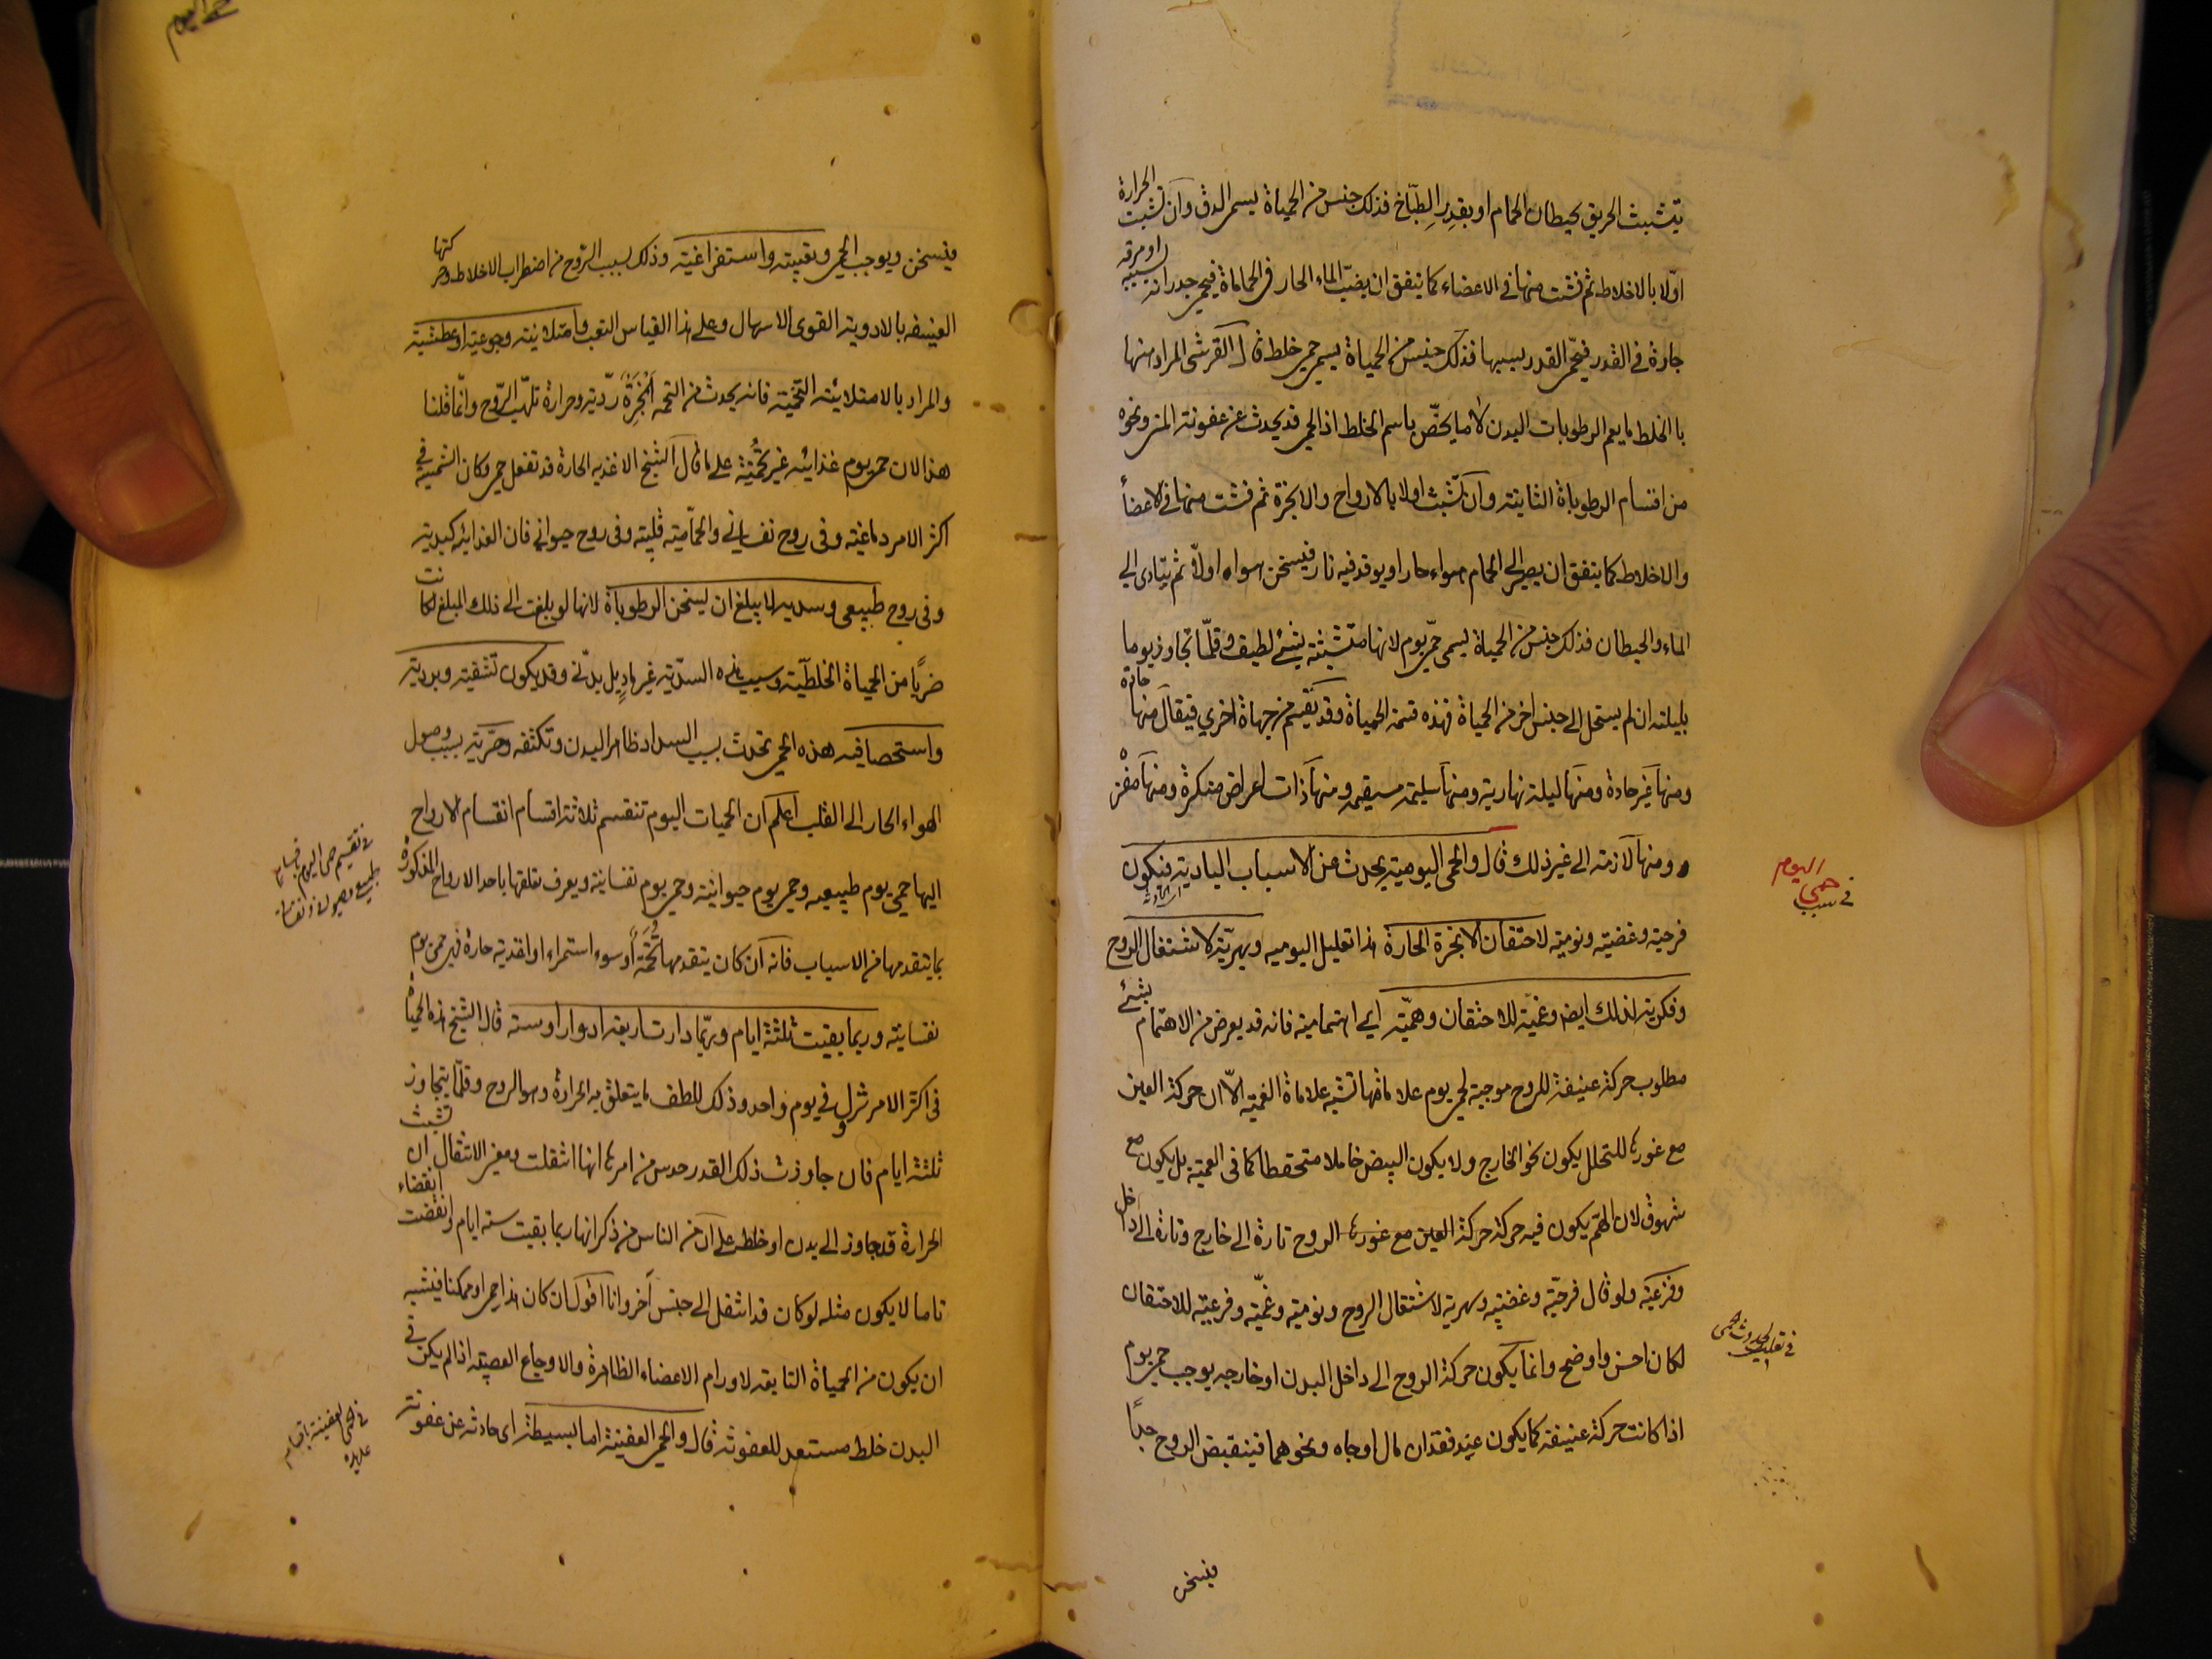 يتشبث الحريق بحيطان الحمام او بقدر الطباخ فذلك جنس من الحمياة يسمى الدق وان تشبت الحرارة
اولا بالاخلاط ثم فشت منها فى الاعضاء كما يتفق ان يصب الماء الحار فى الحماماة فيحمى جدرانه بسببه او مرقه
حارة فى القدر فيحمى القدر بسببها فذلك جنس من الحمياة يسمى حمى خلط قال القرشى المراد منها
بالخلط ما يعم الرطوبات البدن لا ما يخص باسم الخلط اذ الحمى قد يحدث عن عفونة المنى ونحوه
من اقسام الرطوباة الثانية وان تشبث اولا بالارواح والابخرة ثم فشت منها فى الاعضاء
والاخلاط كما يتفق ان يصير الى الحمام هواء حار او يوقد فيه نار فيسخن هواه اولا ثم يتادى الى
الماء والحيطان فذلك جنس من الحمياة يسمى حمى يوم لانها متشبثة بشئ لطيف وقلما تجاوز يوما
بليلته ان لم يستحل الى جنس اخر من الحمياة فهذه قسمة الحمياة وقد تقسم من جهاة اخرى فيقال منها حادة
ومنها غير حادة ومنها ليلة نهارية ومنها سليمة مستقيمه ومنها ذات اعراض منكرة ومنها مفترة
ومنها لازمة الى غير ذلك قال والحمى اليومية يحدث عن الاسباب البادية فيكون
فرحية وغضبية ونومية لاحتقان الابخرة الحارة هذا تعليل اليوميه وسهرية لاشتغال الروح
وفكرية لذلك ايضا وغمية للاحتقان وهمية اى اهتمامية فانه قد يعرض من الاهتمام بشئ
مطلوب حركة عنيفة للروح موجبة لحمى يوم علاماتها تشبه علاماة الغمية الا ان حركة العين
مع غورها للتحلل يكون نحو الخارج ولا يكون النبض خاملا منخفظا كما فى الغمية بل يكون مع
شهوق لان الهم يكون فيه حركة حركة العين مع غورها الروح تارة الى خارج وتارة الى داخل
وفزعية ولو قال فرحية وغضبية وسهرية لاشتعال الروح ونومية وغمية وفزعية للاحتقان
لكان احسن واوضح وانما يكون حركة الروح الى داخل البدن او خارجه يوجب حمى يوم
اذا كانت حركة عنيفة كما يكون عند فقدان مال او جاه ونحوهما فينقبض الروح جدا
فيسخن
فى سبب حمى اليوم
فيسخن ويوجب الحمى وتعبية واستفراغية وذلك بسبب الروح من اضطراب الاخلاط وحركتها
العنيفه بالادوية القوى الاسهال وعلى هذا القياس التعب وامتلائية وجوعية او عطشية
والمراد بالامتلائية التخمية فانه يحدث من التخمه ابخرة ردية وحرارة تلهب الروح وانما قلنا
هذا لان حمى يوم غذائيه غير تخمية على ما قال الشيخ الاغذيه الحارة قد تفعل حمى وكان الشمسية فى
اكثر الامر دماغية وفى روح نفسانى والحمامية قلبية وفى روح حيوانى فان الغذائية كبدية
وفى روح طبيعى وسددية لا يبلغ ان يسخن الرطوباة لانها لو بلغت الى ذلك المبلغ لكانت
ضربا من الحمياة الخلطية وسبب هذه السدية غير باد بل بدنى وقد يكون تشقية وبردية
واستحصافيه هذه الحمى تحدث بسبب انسداد ظاهر البدن وتكثفه وحرية بسبب وصول
الهواء الحار الى القلب اعلم ان الحميات اليوم تنقسم ثلاثة اقسام انقسام الارواح
اليها حمى يوم طبيعيه وحمى يوم حيوانية وحمى يوم نفسانية ويعرف تعلقها باحد الارواح المذكورة
بما يتقدمها من الاسباب فانه ان كان يتقدمها تخمة او سوء استمراء او اغذية حارة فهى حمى يوم
نفسانية وربما بقيت ثلثة ايام وربما دارت اربعة ادوار او سته قال الشيخ هذه الحمياة
فى اكثر الامر تزول فى يوم واحد وذلك للطف ما يتعلق به الحرارة وهو الروح وقلما يتجاوز
ثلثة ايام فان جاوزت ذلك القدر حدس من امرها انها انتقلت ومعنى الانتقال ان تشبث
الحرارة قد جاوز الى بدن او خلط على ان من الناس من ذكر انها ربما بقيت سته ايام وانقضت انقضاء
تاما لا يكون مثله لو كان قد انتقل الى جنس آخر وانا اقول ان كان هذا حمى او ممكنا فيشبه
ان يكون من الحمياة التابعة لاورام الاعضاء الظاهرة والاوجاع العصبيه اذا لم يكن فى
البدن خلط مستعد للعفونة قال والحمى العفنية اما بسيطة اى حادثه عن عفونة